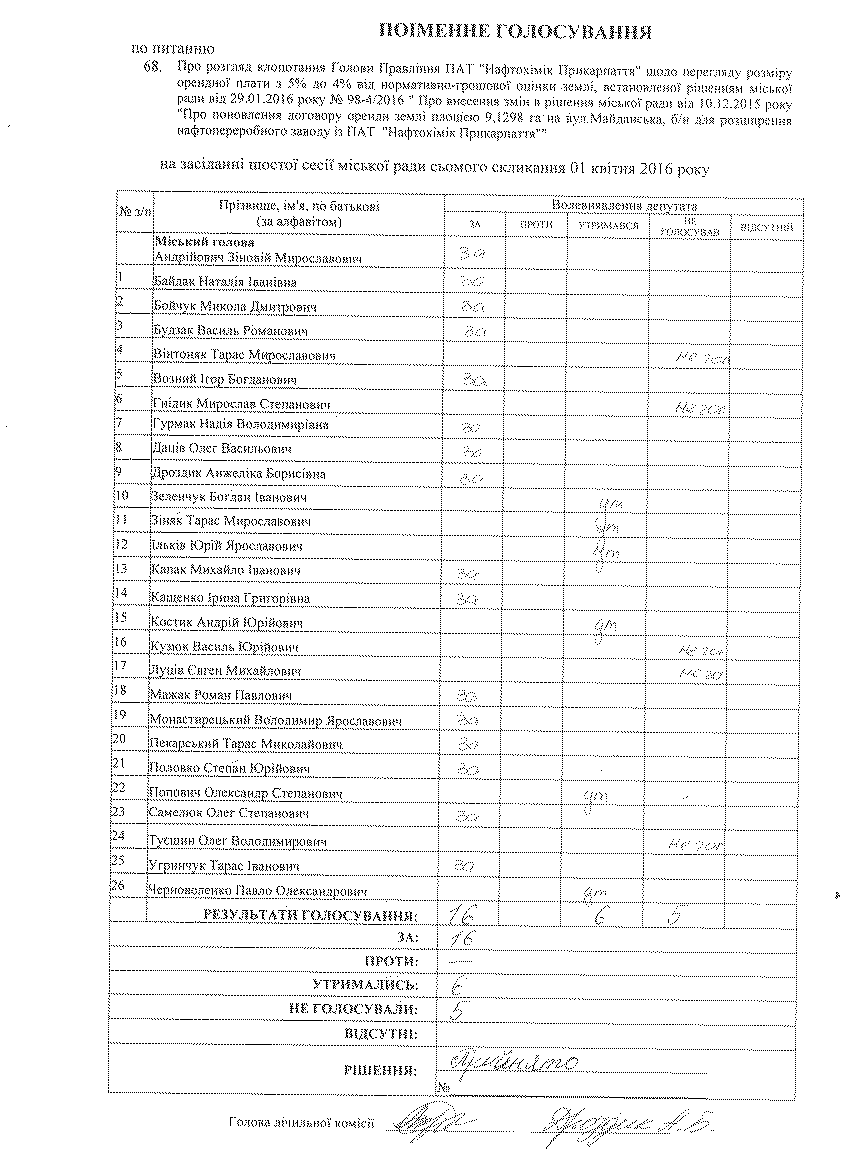 ПОІМЕННЕ ГОЛОСУВАННЯ
по питанню
68. Про розгляд клопотання Голови Правління ПАТ "Нафтохімік Прикарпаття" щодо перегляду розміру
орендної плати з 5% до 4% від нормативно-грошової оцінки землі, встановленої рішенням міської
ради від 29.01.2016 року № 98-4/2016 " Про внесення змін в рішення міської ради від 10.12.2015 року
"Про поновлення договору оренди землі площею 9,1298 га на вул.Майданська, б/н для розширення
нафтопереробного заводу із ПАТ "Нафтохімік Прикарпаття""
на засіданні шостої сесії міської ради сьомого скликання 01 квітня 2016 року
№ з/п Прізвище, ім'я, по батькові (за алфавітом) Волевиявлення депутата
ЗА ПРОТИ УТРИМАВСЯ НЕ ГОЛОСУВАВ ВІДСУТНІЙ
Міський голова
Андрійович Зіновій Мирославович за
1 Байдак Наталія Іванівна за
2 Бойчук Микола Дмитрович за
3 Будзак Василь Романович за
4 Вінтоняк Тарас Мирославович не гол
5 Возний Ігор Богданович за
6 Гнідик Мирослав Степанович не гол
7 Гурмак Надія Володимирівна за
8 Даців Олег Васильович за
9 Дроздик Анжеліка Борисівна за
10 Зеленчук Богдан Іванович ут
11 Зіняк Тарас Мирославович ут
12 Ільків Юрій Ярославович ут
13 Капак Михайло Іванович за
14 Кащенко Ірина Григорівна за
15 Костик Андрій Юрійович ут
16 Кузюк Василь Юрійович не гол
17 Луців Євген Михайлович не го
18 Мажак Роман Павлович за
19 Монастирецький Володимир Ярославович за
20 Пекарський Тарас Миколайович за
21 Половко Степан Юрійович за
22 Попович Олександр Степанович ут
23 Самелюк Олег Степанович за
24 Тусшин Олег Володимирович не гол
25 Угринчук Тарас Іванович за
26 Черноволенко Павло Олександрович ут
РЕЗУЛЬТАТИ ГОЛОСУВАННЯ: 16 6 5
ЗА: 16
ПРОТИ: —
УТРИМАЛИСЬ: 6
НЕ ГОЛОСУВАЛИ: 5
ВІДСУТНІ:
РІШЕННЯ: Прийнято
№
Голова лічильної комісії Дроздик А.Б.